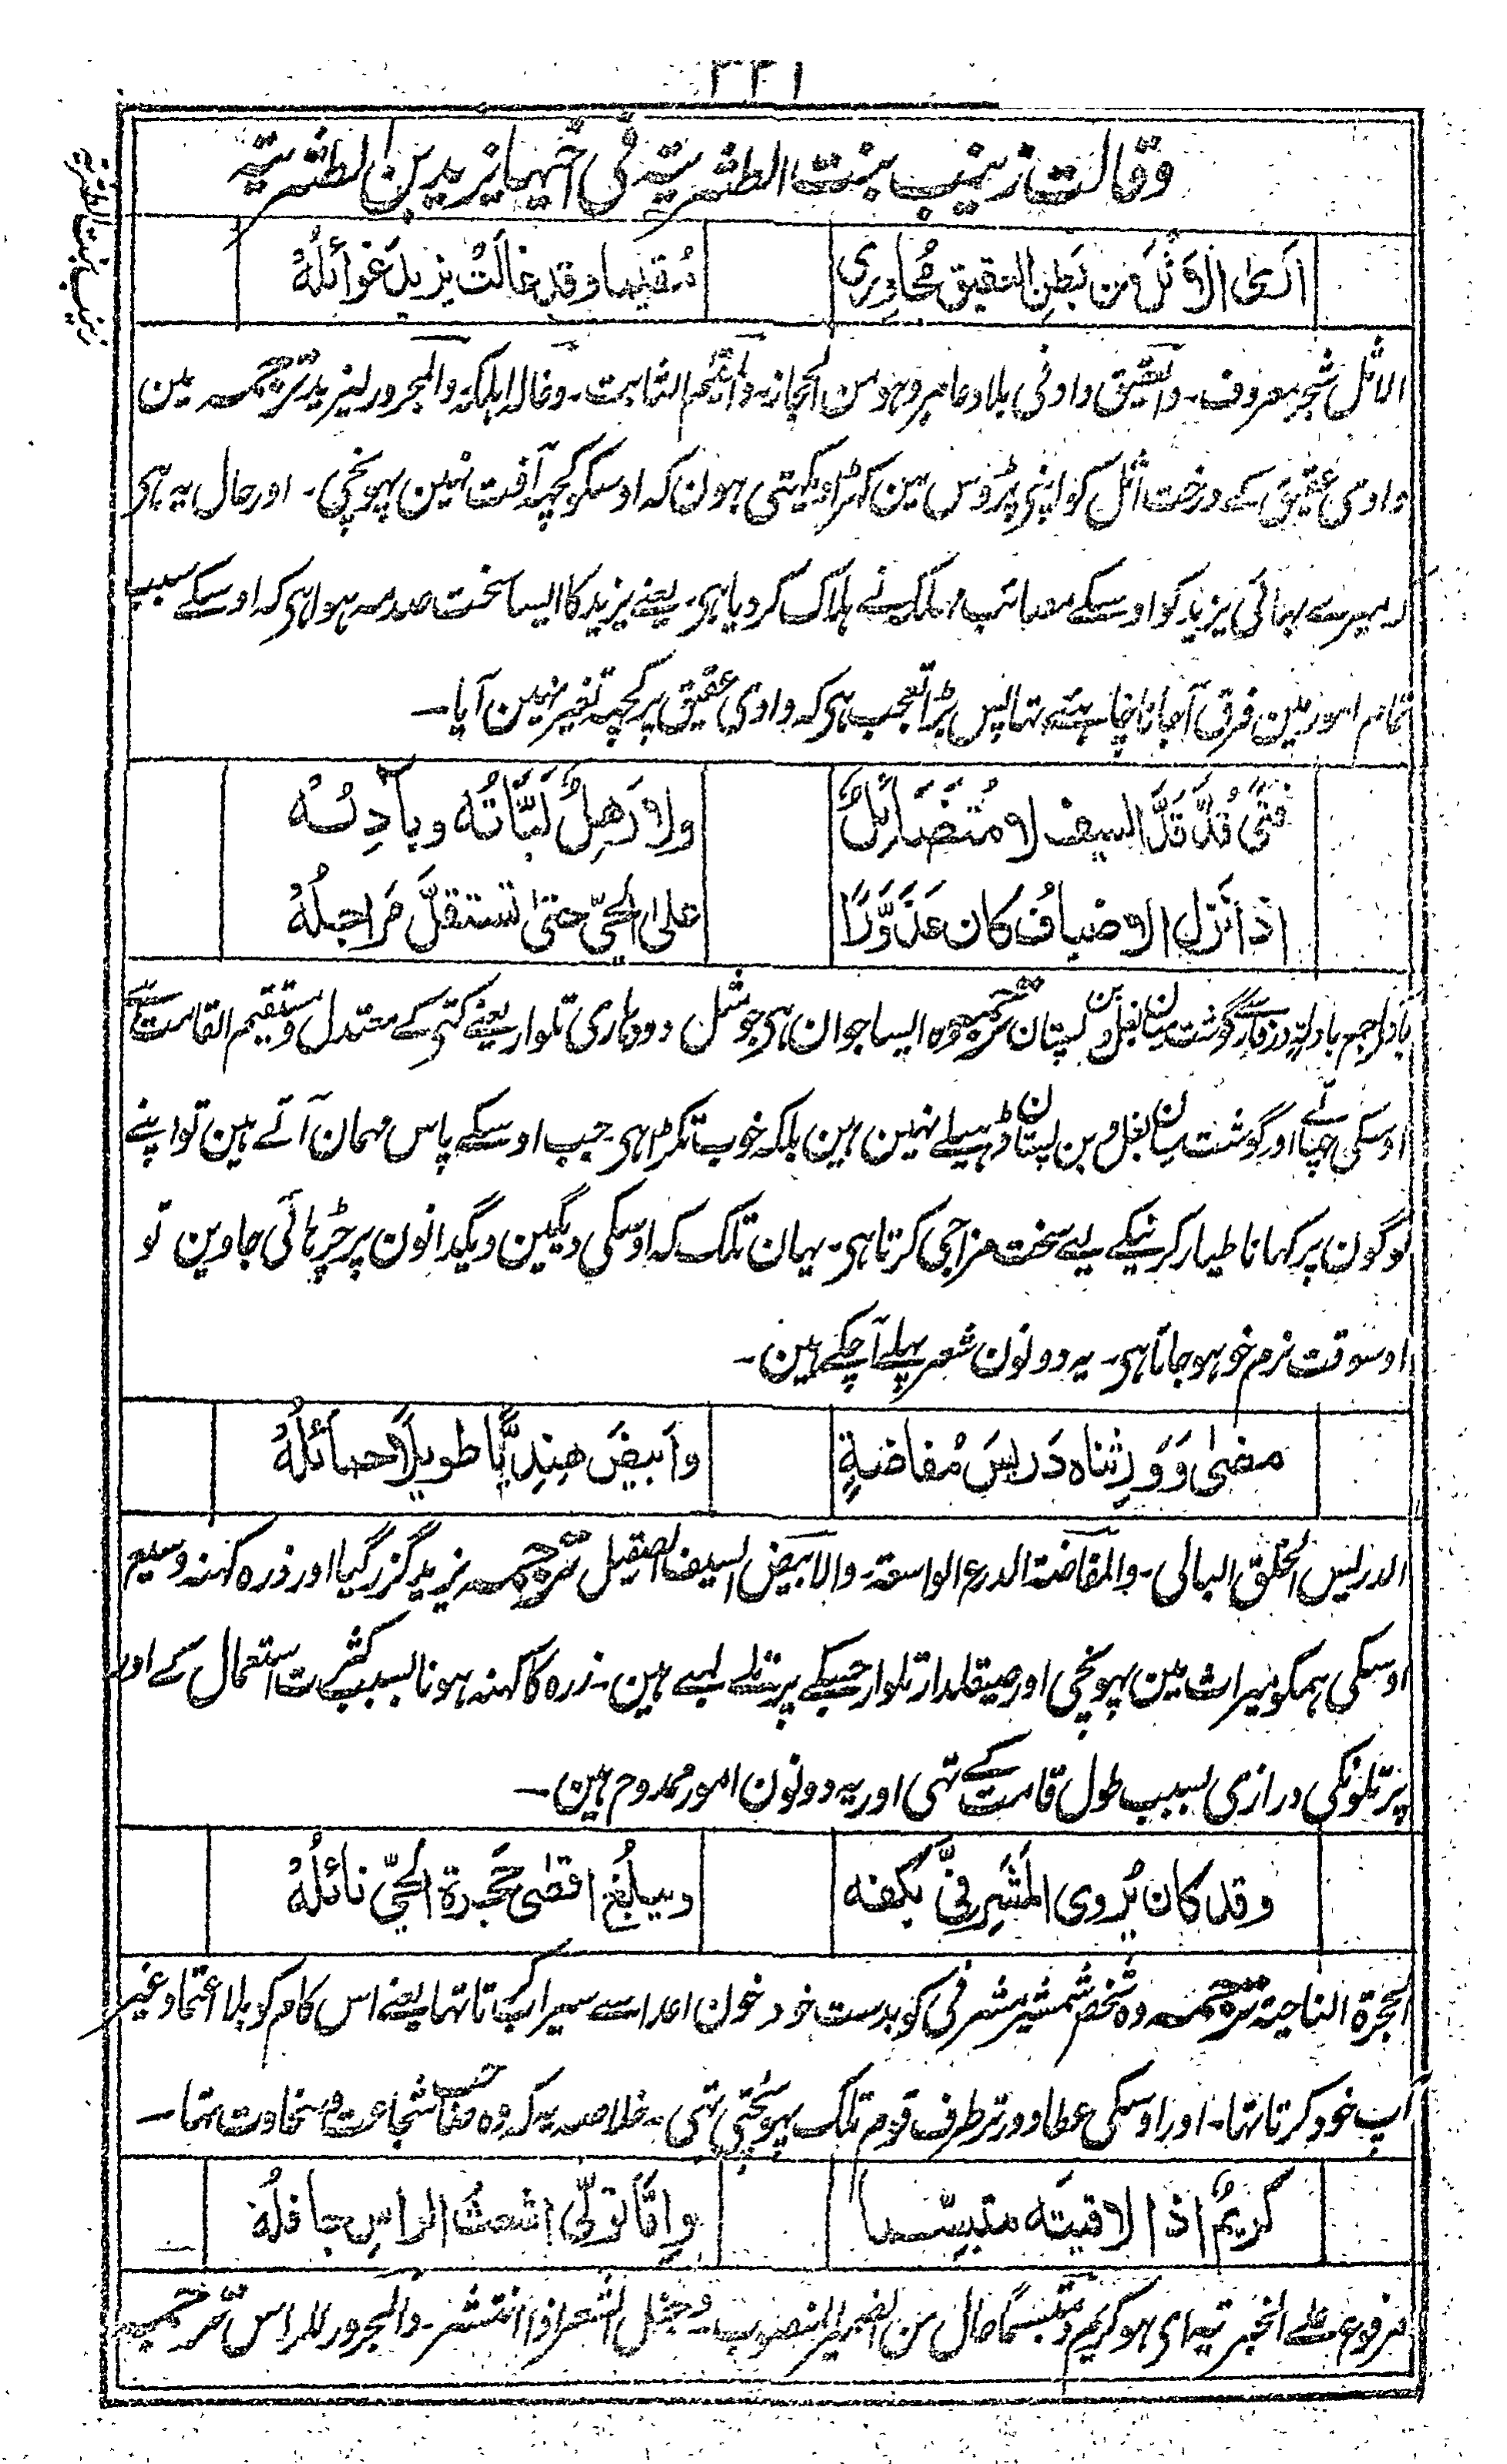 ۳۲۱
وقالت زینب بنت الطثریۃ فی اخیہا یزید بن الطثریۃ
زینب بنت الطثریۃ
اَرَی الاَثْلَ مِن بَطنِ العقیقِ مُجاوِرِی مُقیما وقد غالَتْ یزیدَ غوائلُہٗ
الاثل شجر معروف۔ والعقیق وادٍ فی بلاد عامر وہو من الحجاز۔ والمقیم الثابت۔ وغالہ اہلکہ والمجرور لیزید ترجمہ مین
وادی عقیق کے درخت اثل کو اپنی پڑوس مین کھڑا دیکہتی ہون کہ اوسکو کچہہ آفت نہین پہونچی۔ اور حال یہ ہی
کہ میرے بہائی یزید کو اوسکے مصائب مہلک نے ہلاک کر دیا ہی۔ یعنے یزید کا ایسا سخت صدمہ ہوا ہی کہ اوسکے سبب
تمام امور مین فرق آجانا چاہیئے تہا پس بڑا تعجب ہی کہ وادی عقیق پر کچہہ تغیر نہین آیا۔
فتًی قُدَّ قَدَّ السیف لا مُتَضَائلٌ ولا رَہِلٌ لَبَّاتُہ وبآدِلُہٗ
اذا نَزَل الاضیافُ کان عَذَوَّرًا علی الحیّ حتی تستقلَّ مَراجلُہٗ
بآدل جمع بادلۃ وزفارے گوشت میان بغل و بن پستان ترجمہ وہ ایسا جوان ہی جو مثل دو دہاری تلوار یعنے کتی کے معتدل و مستقیم القامت ہے
اوسکی چہاتے اور گوشت میان بغل و بن پستان ڈہیلے نہین ہین بلکہ خوب تکڑا ہی۔ جب اوسکے پاس مہمان آتے ہین تو اپنے
لوگون پر کہانا طیار کرنیکے لیے سخت مزاجی کرتا ہی۔ یہان تلک کہ اوسکی دیگین دیگدانون پر چڑہائی جاوین تو
اوسوقت نرم خو ہو جاتا ہی۔ یہ دونون شعر پہلے آچکے ہین۔
مضٰی وَوَرِثناہ دَریسَ مُفاضۃٍ واَبیضَ ہندِیًّا طویلًا حمائلُہٗ
الدریس الخلق البالی۔ والمفاضۃ الدرع الواسعۃ۔ والابیض السیف الصقیل ترجمہ یزید گزر گیا اور ذرہ کہنہ وسیع
اوسکی ہمکو میراث مین پہونچی اور صیقلدار تلوار جسکے پرتلے لمبے ہین۔ زرہ کا کہنہ ہونا بسبب کثرت استعمال کے اور
پرتلونکی درازی بسبب طول قامت کے تہی اور یہ دونون امور ممدوح ہین۔
وقد کان یُروی المَشْرَفِیَّ بکفہ ویبلُغ اقصٰی حَجرۃ الحیّ نائلُہٗ
الحجرۃ الناحیۃ ترجمہ وہ شخص شمشیر مشرفی کو بدست خود خون اعدا سے سیراب کرتا تہا یعنے اس کام کو بلا اعتماد غیر
آپ خود کرتا تہا۔ اور اوسکی عطا دور تر طرف قوم تلک پہونچتی تہی۔ خلاصہ یہ کہ وہ صاحب شجاعت و سخاوت تہا۔
کریمٌ اذا لاقیتَہ متبسّما وامّا تولّی اشعثُ الراسِ جافلُہٗ
مرفوع علی الخبریۃ ای ہو کریم و متبسمًا حال من الضمیر المنصوب۔ وجفل الشعر اذا انتشر۔ والمجرور للراس ترجمہ